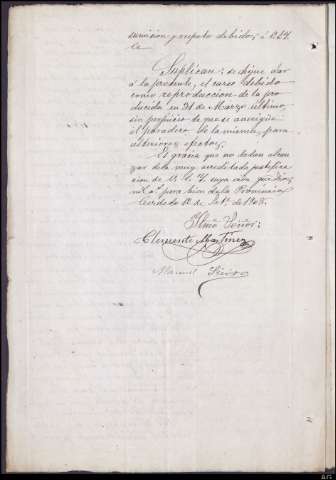 sumision y respeto debidos, á V.S.Y.
le
Suplican: se digne dar
á la presente, el curso debido
como reproduccion de la pro
ducida en 31 de Marzo último,
sin perjuicio de que se averigüe
el paradero de la misma, para
ulteriores efectos.
Es gracia que no dudan alcan
zar de la muy acreditada justifica
cion de V. S. Y. cuya vida guarde Dios
m.s a.s para bien de la Provincia
12 de Set.e de 1908.
Iltmo Señor:
Clemente Martinez
Manuel